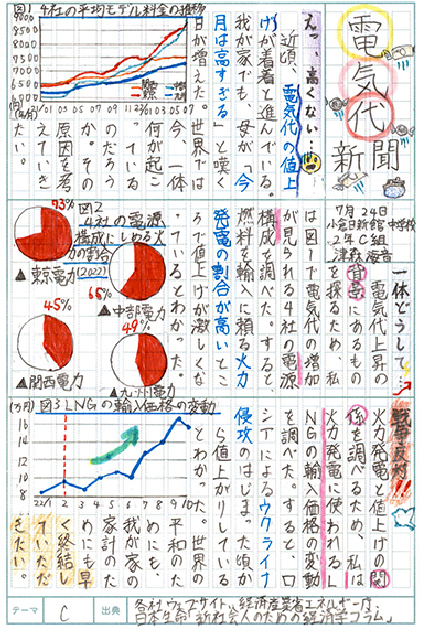 電気代新聞
7月24日
小倉日新館中学校
2年C組
津森海音
えっ、高くない…
近頃、電気代の値上
げが着着と進んでいる。
我が家でも、母が「今
月は高すぎる」と嘆く
日が増えた。世界では
今、一体
何が起こ
っている
のだろう
か。その
原因を考
えていき
たい。
図1 4社の平均モデル料金の推移
9000
8500
8000
7500
7000
6500
6000
一体どうして…
電気代上昇の
背景にあるもの
を探るため、私
は図1で電気代の増加
が見られる4社の電源
構成を調べた。すると、
燃料を輸入に頼る火力
発電の割合が高いとこ
ろで値上げが激しくな
っているとわかった。
図2
4社の電源
構成にしめる火力
の割合
(2022)
73%
▲東京電力
65%
▲中部電力
45%
▲関西電力
49%
▲九州電力
戦争反対!!
火力発電と値上げの関
係を調べるため、私は
火力発電に使われるL
NGの輸入価格の変動
を調べた。すると、ロ
シアによるウクライナ
侵攻のはじまった頃か
ら値上がりしている
とわかった。世界の
平和のた
めにも、
我が家の
家計のた
めにも早
く終結し
ていただ
きたい。
(万円)
図3 LNGの輸入価格の変動
16
14
12
10
8
22/1 2 3 4 5 6 7 8 9 10
テーマ
C
出典
各社ウェブサイト、経済産業省エネルギー庁、
日本生命「新社会人のための経済学コラム」